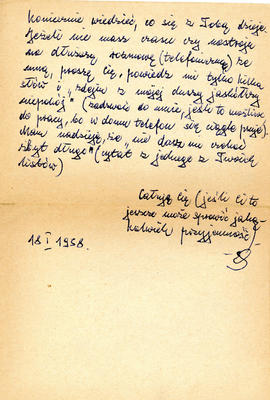 koniecznie wiedzieć, co się z Tobą dzieje.
Jeżeli nie masz czasu czy nastroju
na dłuższą rozmowę (telefoniczną) ze
mną, proszę Cię, powiedz mi tylko kilka
słów i „zdejm z mojej duszy jaskółczy
niepokój” (zadzwoń do mnie, jeśli to możliwe
do pracy, bo w domu telefon się ciągle psuje).
Mam nadzieję, że „nie dasz mi czekać
zbyt długo” (cytat z jednego z Twoich
listów)
Całuję Cię (jeśli Ci to
jeszcze może sprawić jaką-
kolwiek przyjemność)
18 I 1958.